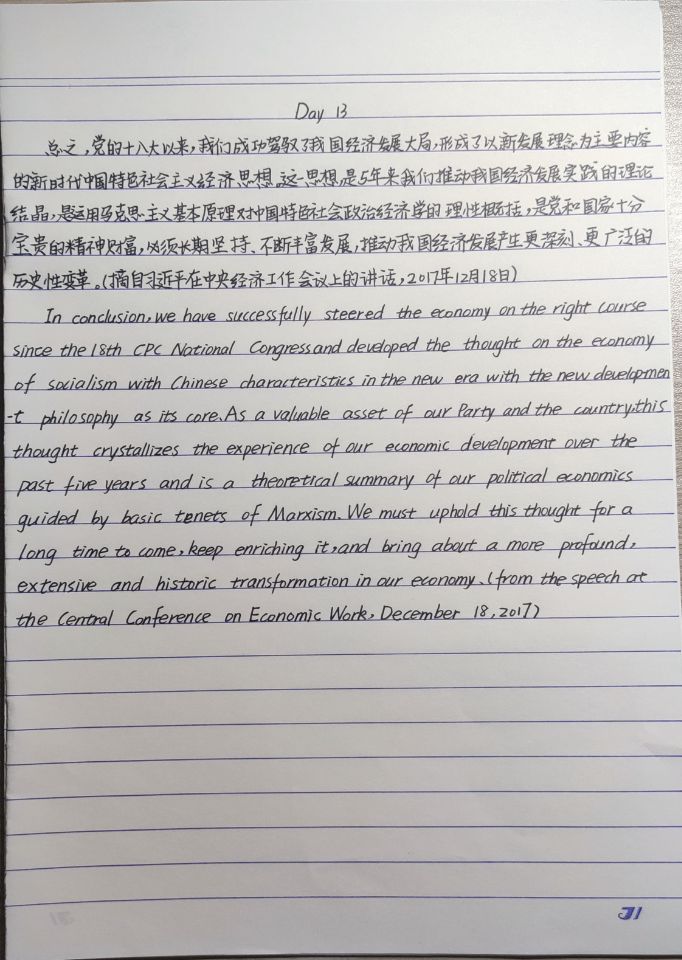 Day 13
总之,党的十八大以来,我们成功驾驭了我国经济发展大局,形成了以新发展理念为主要内容
的新时代中国特色社会主义经济思想。这一思想是5年来我们推动我国经济发展实践的理论
结晶,是运用马克思主义基本原理对中国特色社会政治经济学的理性概括,是党和国家十分
宝贵的精神财富,必须长期坚持、不断丰富发展,推动我国经济发展产生更深刻、更广泛的
历史性变革。(摘自习近平在中央经济工作会议上的讲话,2017年12月18日)
In conclusion, we have successfully steered the economy on the right course
since the 18th CPC National Congress and developed the thought on the economy
of socialism with Chinese characteristics in the new era with the new developmen
-t philosophy as its core. As a valuable asset of our Party and the country, this
thought crystallizes the experience of our economic development over the
past five years and is a theoretical summary of our political economics
guided by basic tenets of Marxism. We must uphold this thought for a
long time to come, keep enriching it, and bring about a more profound,
extensive and historic transformation in our economy. (from the speech at
the Central Conference on Economic Work, December 18, 2017)
31